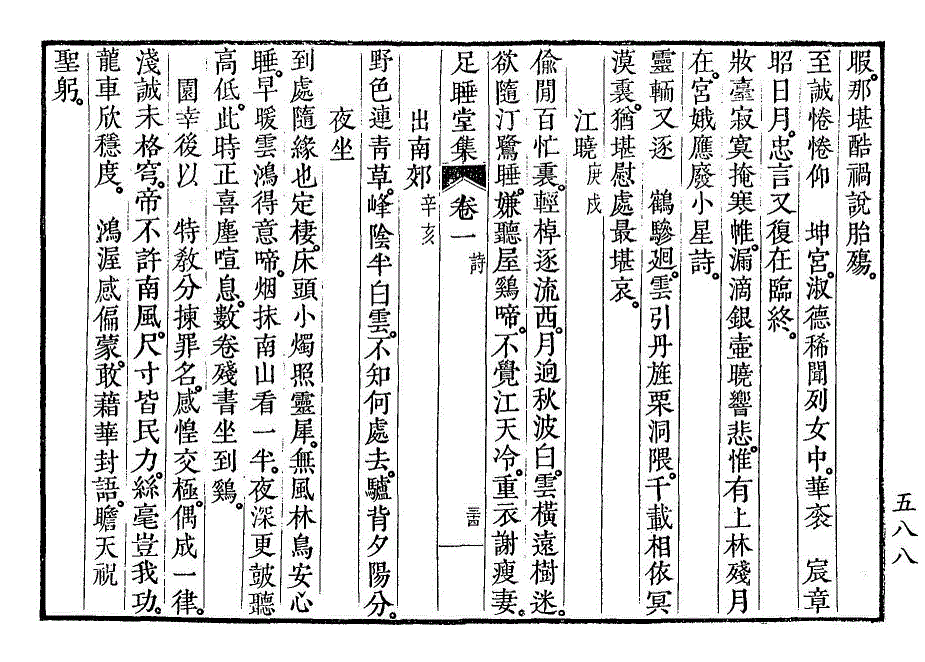 暇。那堪酷禍說胎殤。
至誠惓惓仰　坤宮。淑德稀聞列女中。華衮　宸章
昭日月。忠言又復在臨終。
妝臺寂寞掩寒帷。漏滴銀壷曉響悲。惟有上林殘月
在。宮娥應廢小星詩。
靈輀又逐　鶴驂廻。雲引丹旌栗洞隈。千載相依冥
漠裏。猶堪慰處最堪哀。
江曉 庚戌
偸閒百忙裏。輕棹逐流西。月逈秋波白。雲橫遠樹迷。
欲隨汀鷺睡。嫌聽屋鷄啼。不覺江天冷。重衣謝瘦妻。
足睡堂集 卷一 詩
出南郊 辛亥
野色連靑草。峰陰半白雲。不知何處去。驢背夕陽分。
夜坐
到處隨緣也定棲。床頭小燭照靈犀。無風林鳥安心
睡。早暖雲鴻得意啼。烟抹南山看一半。夜深更皷聽
高低。此時正喜塵喧息。數卷殘書坐到鷄。
園幸後以　特敎分揀罪名。感惶交極。偶成一律。
淺誠未格穹。帝不許南風。尺寸皆民力。絲毫豈我功。
龍車欣穩度。　鴻渥感偏蒙。敢藉華封語。瞻天祝
聖躬。
五八八